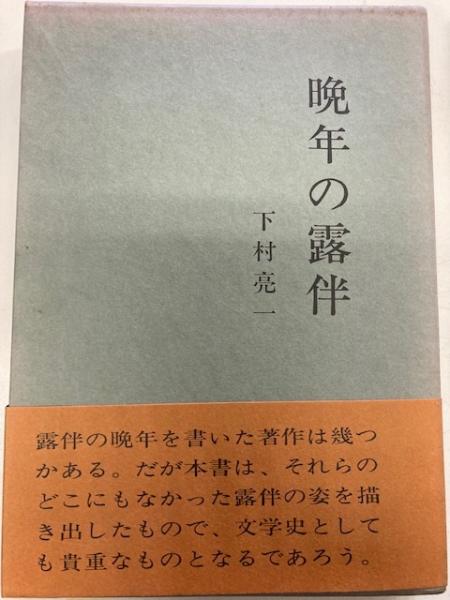 晩年の露伴
下村亮一
露伴の晩年を書いた著作は幾つ
かある。だが本書は、それらの
どこにもなかった露伴の姿を描
き出したもので、文学史として
も貴重なものとなるであろう。